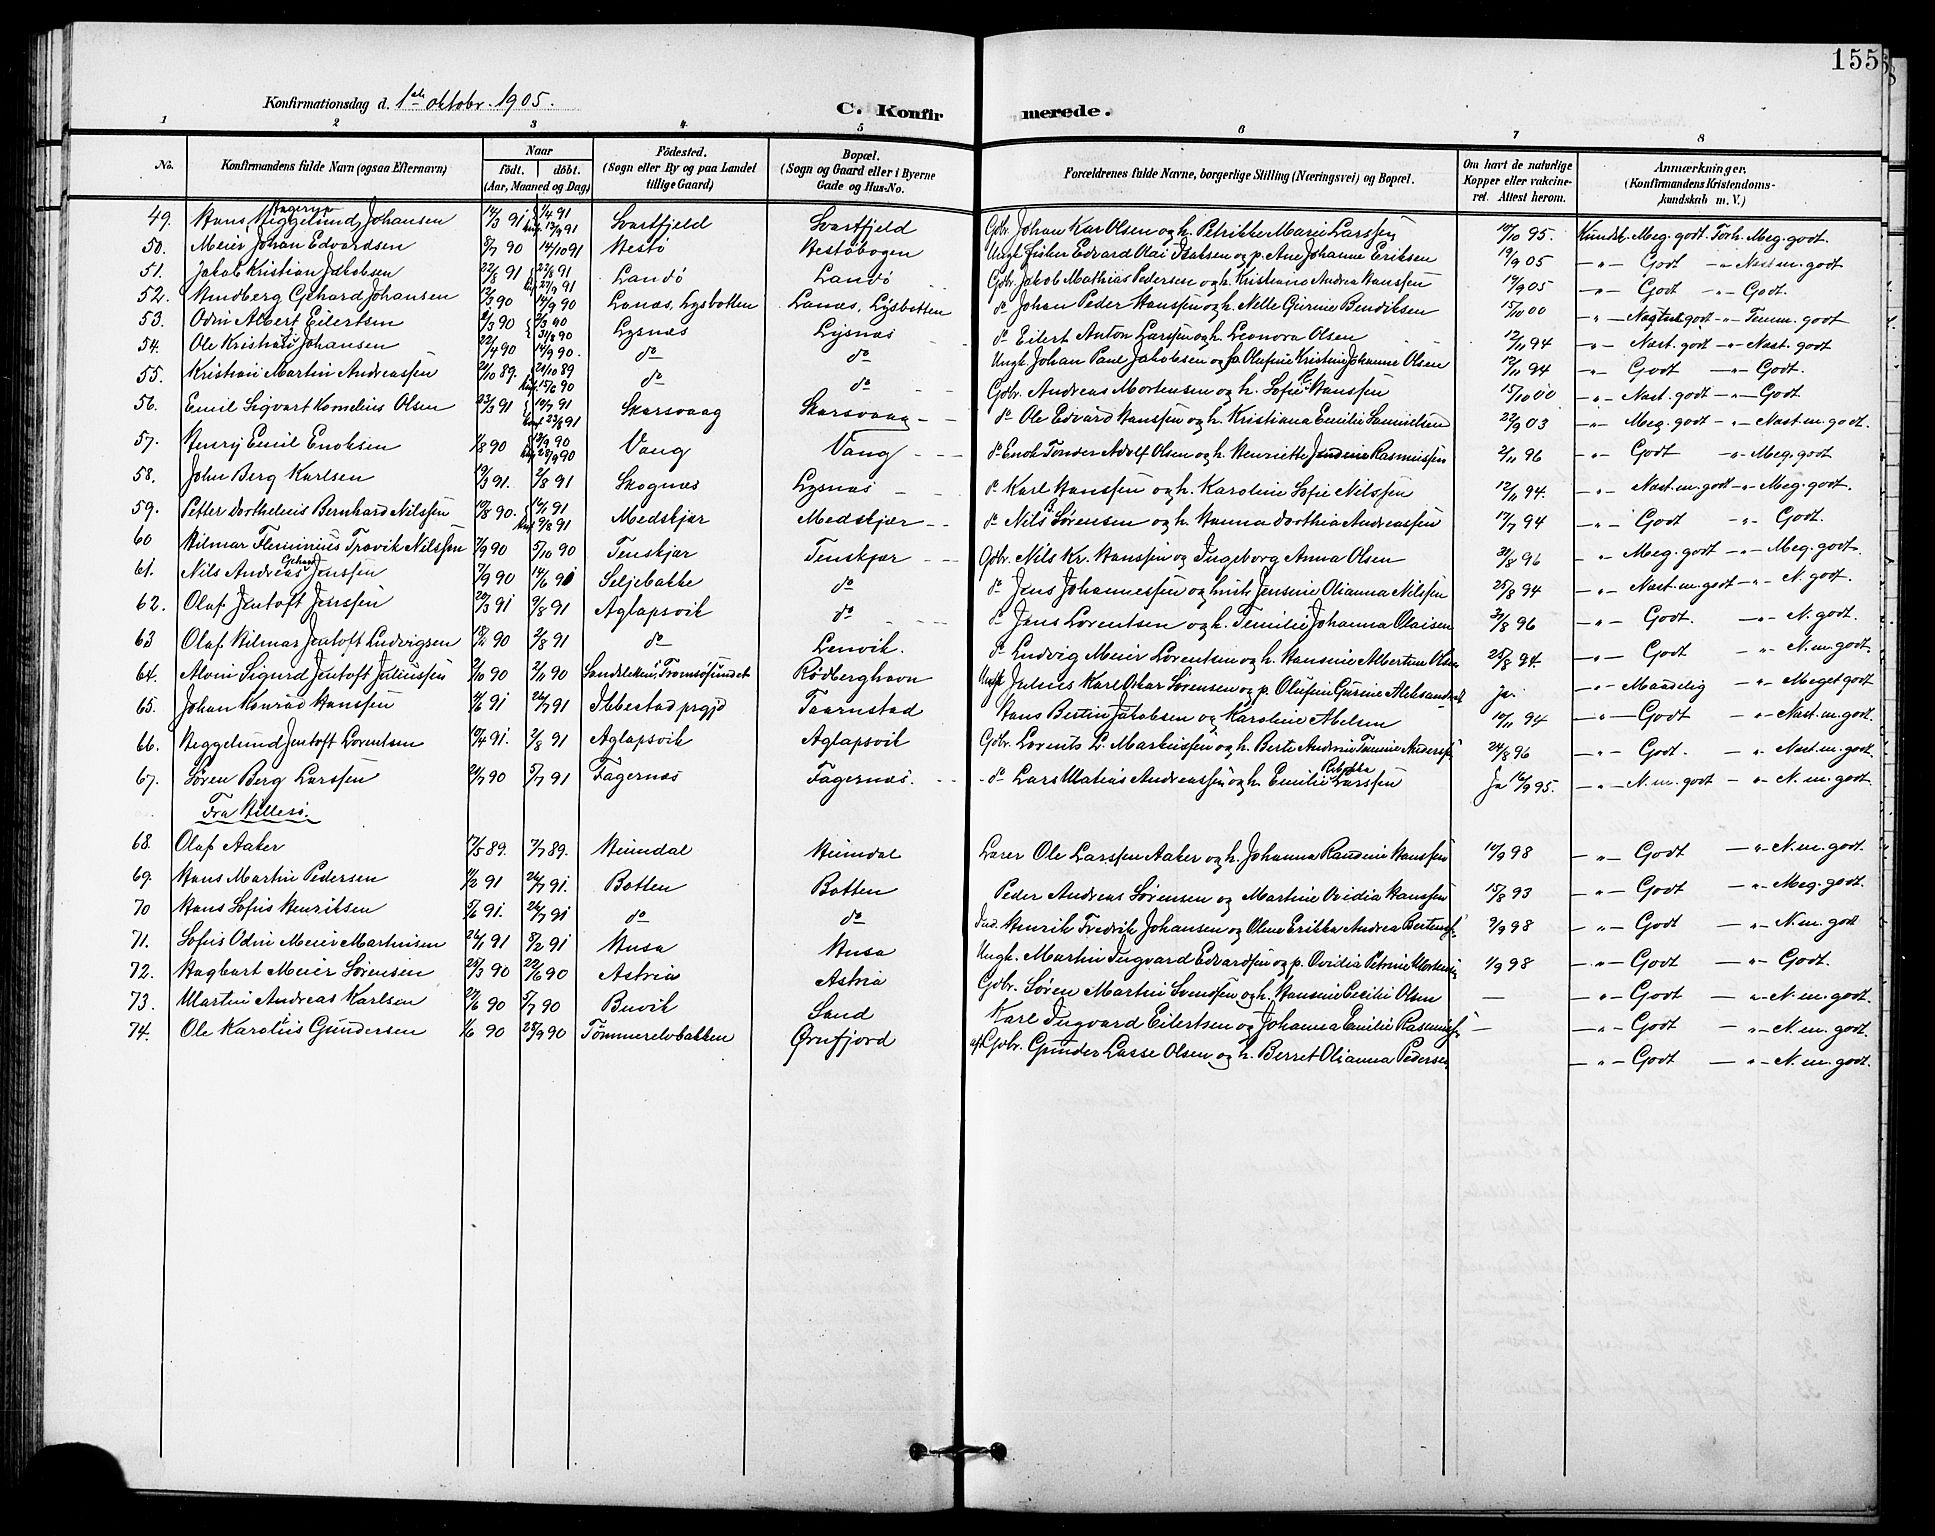 155
Konfirmationsdag d. 1ste oktobr. 1905.
C. Konfirmerede.
1 2 3 4 5 6 7 8
No. Konfirmandens fulde Navn (ogsaa Efternavn) Naar födt. döbt. (Aar, Maaned og Dag) Födested. (Sogn eller By og paa Landet tillige Gaard) Bopæl. (Sogn og Gaard eller i Byerne Gade og Hus-No. Forældrenes fulde Navne, borgerlige Stilling (Næringsvei) og Bopæl. Om havt de naturlige Kopper eller vakcineret. Attest herom. Anmærkninger. (Konfirmandens Kristendomskundskab m. V.)
49. Hans Hagerup Heggelund Johansen 14/3 91 Svartfjeld Svartfjeld Gdbr. Johan Kar Olsen og h. Petrikke Marie Larssen 10/10 95. Kundsk. Meg. godt. Forh. Meg. godt.
50. Meier Johan Edvardsen 8/7 90 14/10 91 Hestø Hestøbogen Ungk. fisker Edvard Olai Isaksen og p. Ane Johanne Eriksen 19/9 05 —"— Godt —"— Nast m. godt
51. Jakob Kristian Jakobsen 22/8 91 Landø Landø Gdbr. Jakob Mathias Pedersen og h. Kristiane Andrea Hanssen 17/9 05 —"— Godt —"— Godt.
52. Hindberg Gehard Johansen 12/2 90 14/9 90 Lanæs, Lysbotten Lanæs, Lysbotten do Johan Peder Hanssen og h. Nelle Gurine Bendiksen 15/10 00 —"— godt —"— Temm. godt
53. Odin Albert Eilertsen 2/3 90 31/8 90 Lysnæs Lysnæs do Eilert Anton Larssen og h. Leonora Olsen 12/11 94 —"— Nast. godt —"— Nast. godt
54. Ole Kristian Johansen 22/4 90 14/9 90. do do Ungk. Johan Paul Jakobsen og p. Olufine Kristine Johanne Olsen 12/11 94 —"— Godt —"— Godt.
55. Kristian Martin Andreassen 21/10 89. 15/6 90 do do Gdbr. Andreas Mortensen og h. Sofie P. Hanssen 15/10 00 —"— Nast. godt —"— Godt.
56. Emil Sigvart Kornelius Olsen 23/3 91 Skarsvaag Skarsvaag do Ole Edvard Hanssen og h. Kristiana Emilie Samuelsen 22/9 03 —"— Meg. godt —"— Nast. m. godt.
57. Henry Emil Enoksen 1/8 90 Vang Vang do Enok Tønder Adolf Olsen og h. Henriette Jendine Rasmussen 2/11 96 —"— Godt —"— Meg. godt
58. John Berg Karlsen 19/3 91. 2/8 91 Skognæs Lysnæs do Karl Hanssen og h. Karoline Sofie Nilssen 12/11 94. —"— Nast. m. godt —"— Meg. godt.
59. Petter Dorthelius Bernhard Nilssen 10/8 90. 9/8 91 Medskjær Medskjær do Nils Sørensen og h. Hanna Dorthia Andreassen 17/7 94 —"— Godt —"— Godt.
60 Hilmar Fleminius Travik Nilssen 7/9 90 5/10 90 Tenskjær Tenskjær Gdbr. Nils Kr. Hanssen og Ingeborg Anna Olsen 30/8 96 —"— Meg. godt —"— Meg. godt.
61. Nils Andreas Gehard Jenssen 7/9 90 14/6 91 Seljebakke do do Jens Johannessen og hust. Jensine Olianna Nilssen 25/8 94 —"— Nast. m. godt —"— N. godt.
62. Olaf Jentoft Jenssen 20/3 91 9/8 91 Aglapsvik do do Jens Lorentsen og h. Temilie Johanna Olaisen 30/8 96 —"— Godt. —"— N. godt.
63 Olaf Hilmar Jentoft Ludvigsen 18/12 90 2/8 91 do Lenvik. do Ludvig Meier Lorentsen og h. Hansine Albertine Olsen 25/8 94. —"— Godt —"— N. m. godt.
64. Alvin Sigurd Jentoft Juliussen 2/10 90 2/11 90 Tromsøsundet Rødberghavn Ungk Julius Karl Oskar Sørensen og p. Olufine Gurine Aleksandersen ja. —"— Maadelig —"— Meget godt
65. Johan Konrad Hanssen 4/6 91 26/7 91 Ibbestad prgjd Taarnstad Hans Bertin Jakobsen og Karoline Abelsen 10/11 94 —"— Godt —"— Nast. m. godt.
66. Heggelund Jentoft Lorentsen 10/4 91. 2/8 91 Aglapsvik Aglapsvik Gdbr. Lorents L. Markussen og h. Berte Andrine Tomine Anderss. 24/8 96 —"— Godt. —"— Nast. m. godt.
67. Søren Berg Larssen 21/7 90 5/7 91 Fagernæs Fagernæs. do Lars Matias Andreassen og h. Emilie Rebekka Larssen Ja 16/9 95. —"— N. m. godt —"— N. m. godt.
Fra Hillesø.
68. Olaf Aaker 17/5 89. 7/7 89. Heimdal Heimdal Lærer Ole Larssen Aaker og h. Johanna Randine Hanssen 10/9 98 —"— Godt —"— N. m. godt
69. Hans Martin Pedersen 11/2 91 26/7 91. Botten Botten Peder Andreas Sørensen og Martine Ovidia Hanssen 15/8 93 —"— Godt —"— Meg. godt.
70 Hans Sofus Henriksen 5/6 91. 26/7 91 do do Ind. Henrik Fredrik Johansen og Oline Erikka Andrea Bertheuss. 9/9 98 —"— Godt —"— N. m. godt
71. Sofus Odin Meier Martinsen 26/1 91 8/2 91 Husa Husa Ungk. Martin Ingvard Edvardsen og p. Ovidia Petrine Mortensen 1/9 98 —"— Godt —"— Godt.
72. Hagbart Meier Sørensen 25/3 90 22/6 90 Astria Astria Gdbr. Søren Martin Svendsen og h. Hansine Cecilie Olsen — —"— Godt —"— N. m. godt.
73. Martin Andreas Karlsen 27/6 90 5/7 90 Buvik Sand Karl Ingvard Eilertsen og Johanna Emilie Rasmuss. — —"— Godt —"— N. m. godt.
74. Ole Karolius Gundersen 1/6 90 28/9 90 Tömmerelvbakken Ørnfjord afd. Gdbr. Gunder Lasse Olsen og h. Berret Olianna Pedersen —"— Godt —"— N. m. godt.